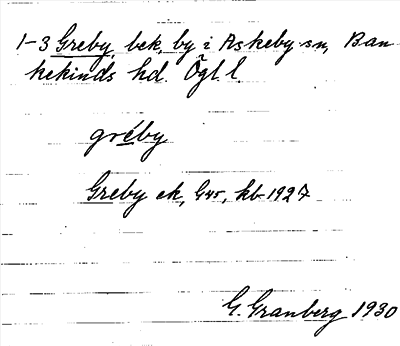 1-3 Greby, bek, by i Askeby sn, Ban
kekinds hd. Ögl. l.
gréby
Greby ek, G45, kb 1927
G. Granberg 1930